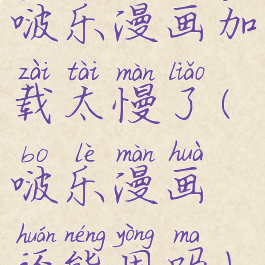 啵乐漫画加
zài tài màn liǎo
载太慢了(
bo lè màn huà
啵乐漫画
huán néng yòng ma
还能用吗)